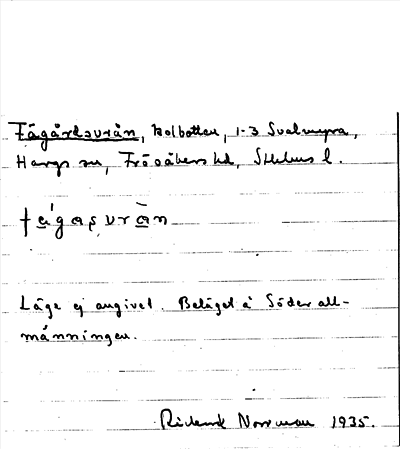 Fågårdsvrån, kolbotten, 1-3 Svalmyra,
Hargs sn, Frösåkers hd, Sthlms l.
Läge ej angivet. Beläget å Söder all-
männingen.
Rickard Norrman 1935.